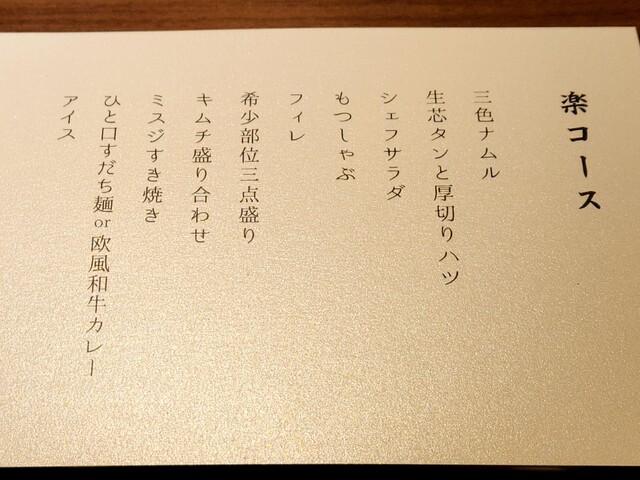 楽コース
三色ナムル
生芯タンと厚切りハツ
シェフサラダ
もつしゃぶ
フィレ
希少部位三点盛り
キムチ盛り合わせ
ミスジすき焼き
ひと口すだち麺or欧風和牛カレー
アイス